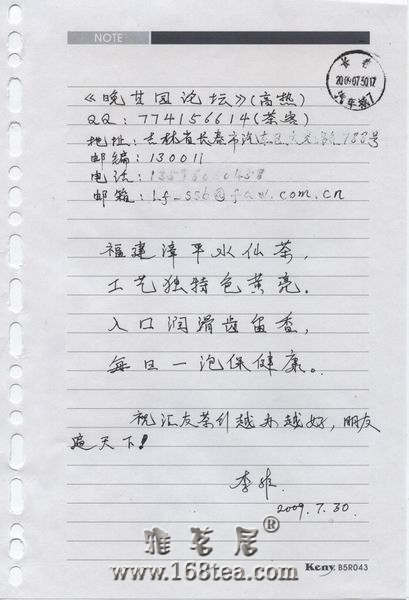 NOTE
长春
2009.07.30.17
《晚甘园论坛》(高热)
QQ：774156614(茶客)
地址：吉林省长春市汽车区 788号
邮编：130011
电话：
邮箱：Lf_ssb@faw.com.cn
福建漳平水仙茶，
工艺独特色黄亮．
入口润滑齿留香，
每日一泡保健康。
祝汇友茶行越来越好，朋友
遍天下！
李
2009.7.30.
雅茗居®
www.168tea.com
Keny B5R043